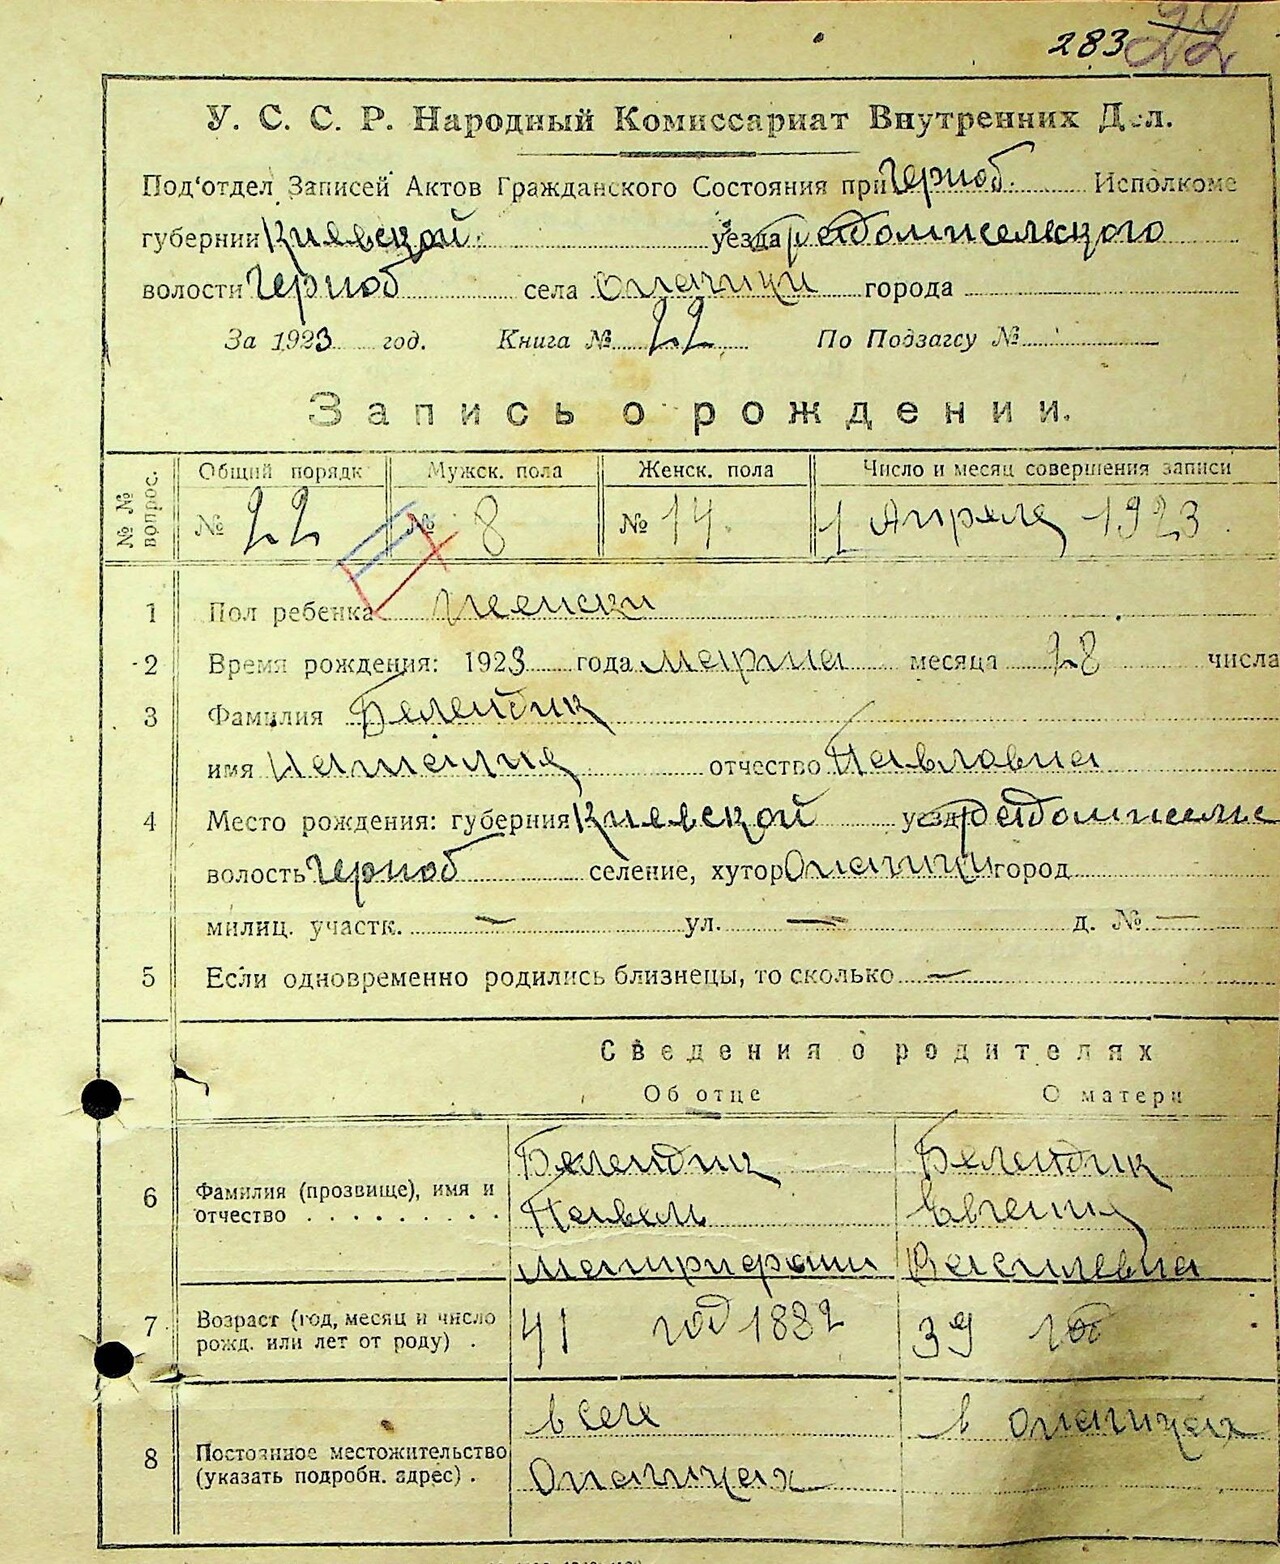 283 22
У. С. С. Р. Народный Комиссариат Внутренних Дел.
Под'отдел Записей Актов Гражданского Состояния при Черноб. Исполкоме
губернии Киевской уезда Радомысельского
волости Черноб села Опачичи города
За 1923 год. Книга № 22 По Подзагсу №
Запись о рождении.
№ № вопрос. Общий порядк Мужск. пола Женск. пола Число и месяц совершения записи
№ 22 № 8 № 14 1 Апреля 1923
1 Пол ребенка женски
2 Время рождения: 1923 года марта месяца 28 числа
3 Фамилия Белендик
имя Наталия отчество Павловна
4 Место рождения: губерния Киевской уезд
волость Черноб селение, хутор Опачичи город
милиц. участк. — ул. — д. № —
5 Если одновременно родились близнецы, то сколько —
Сведения о родителях
Об отце О матери
6 Фамилия (прозвище), имя и отчество
Белендик Белендик
Павель Евгения
Василевна
7 Возраст (год, месяц и число рожд. или лет от роду) .
41 год 1882 39 год
8 Постоянное местожительство (указать подробн. адрес) .
в селе в Опачичах
Опачичах